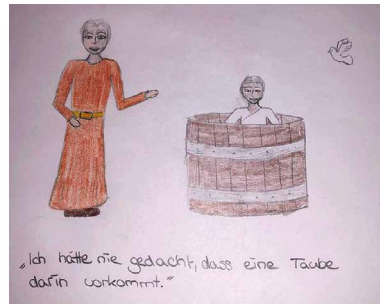 „Ich hätte nie gedacht, dass eine Taube
darin vorkommt."